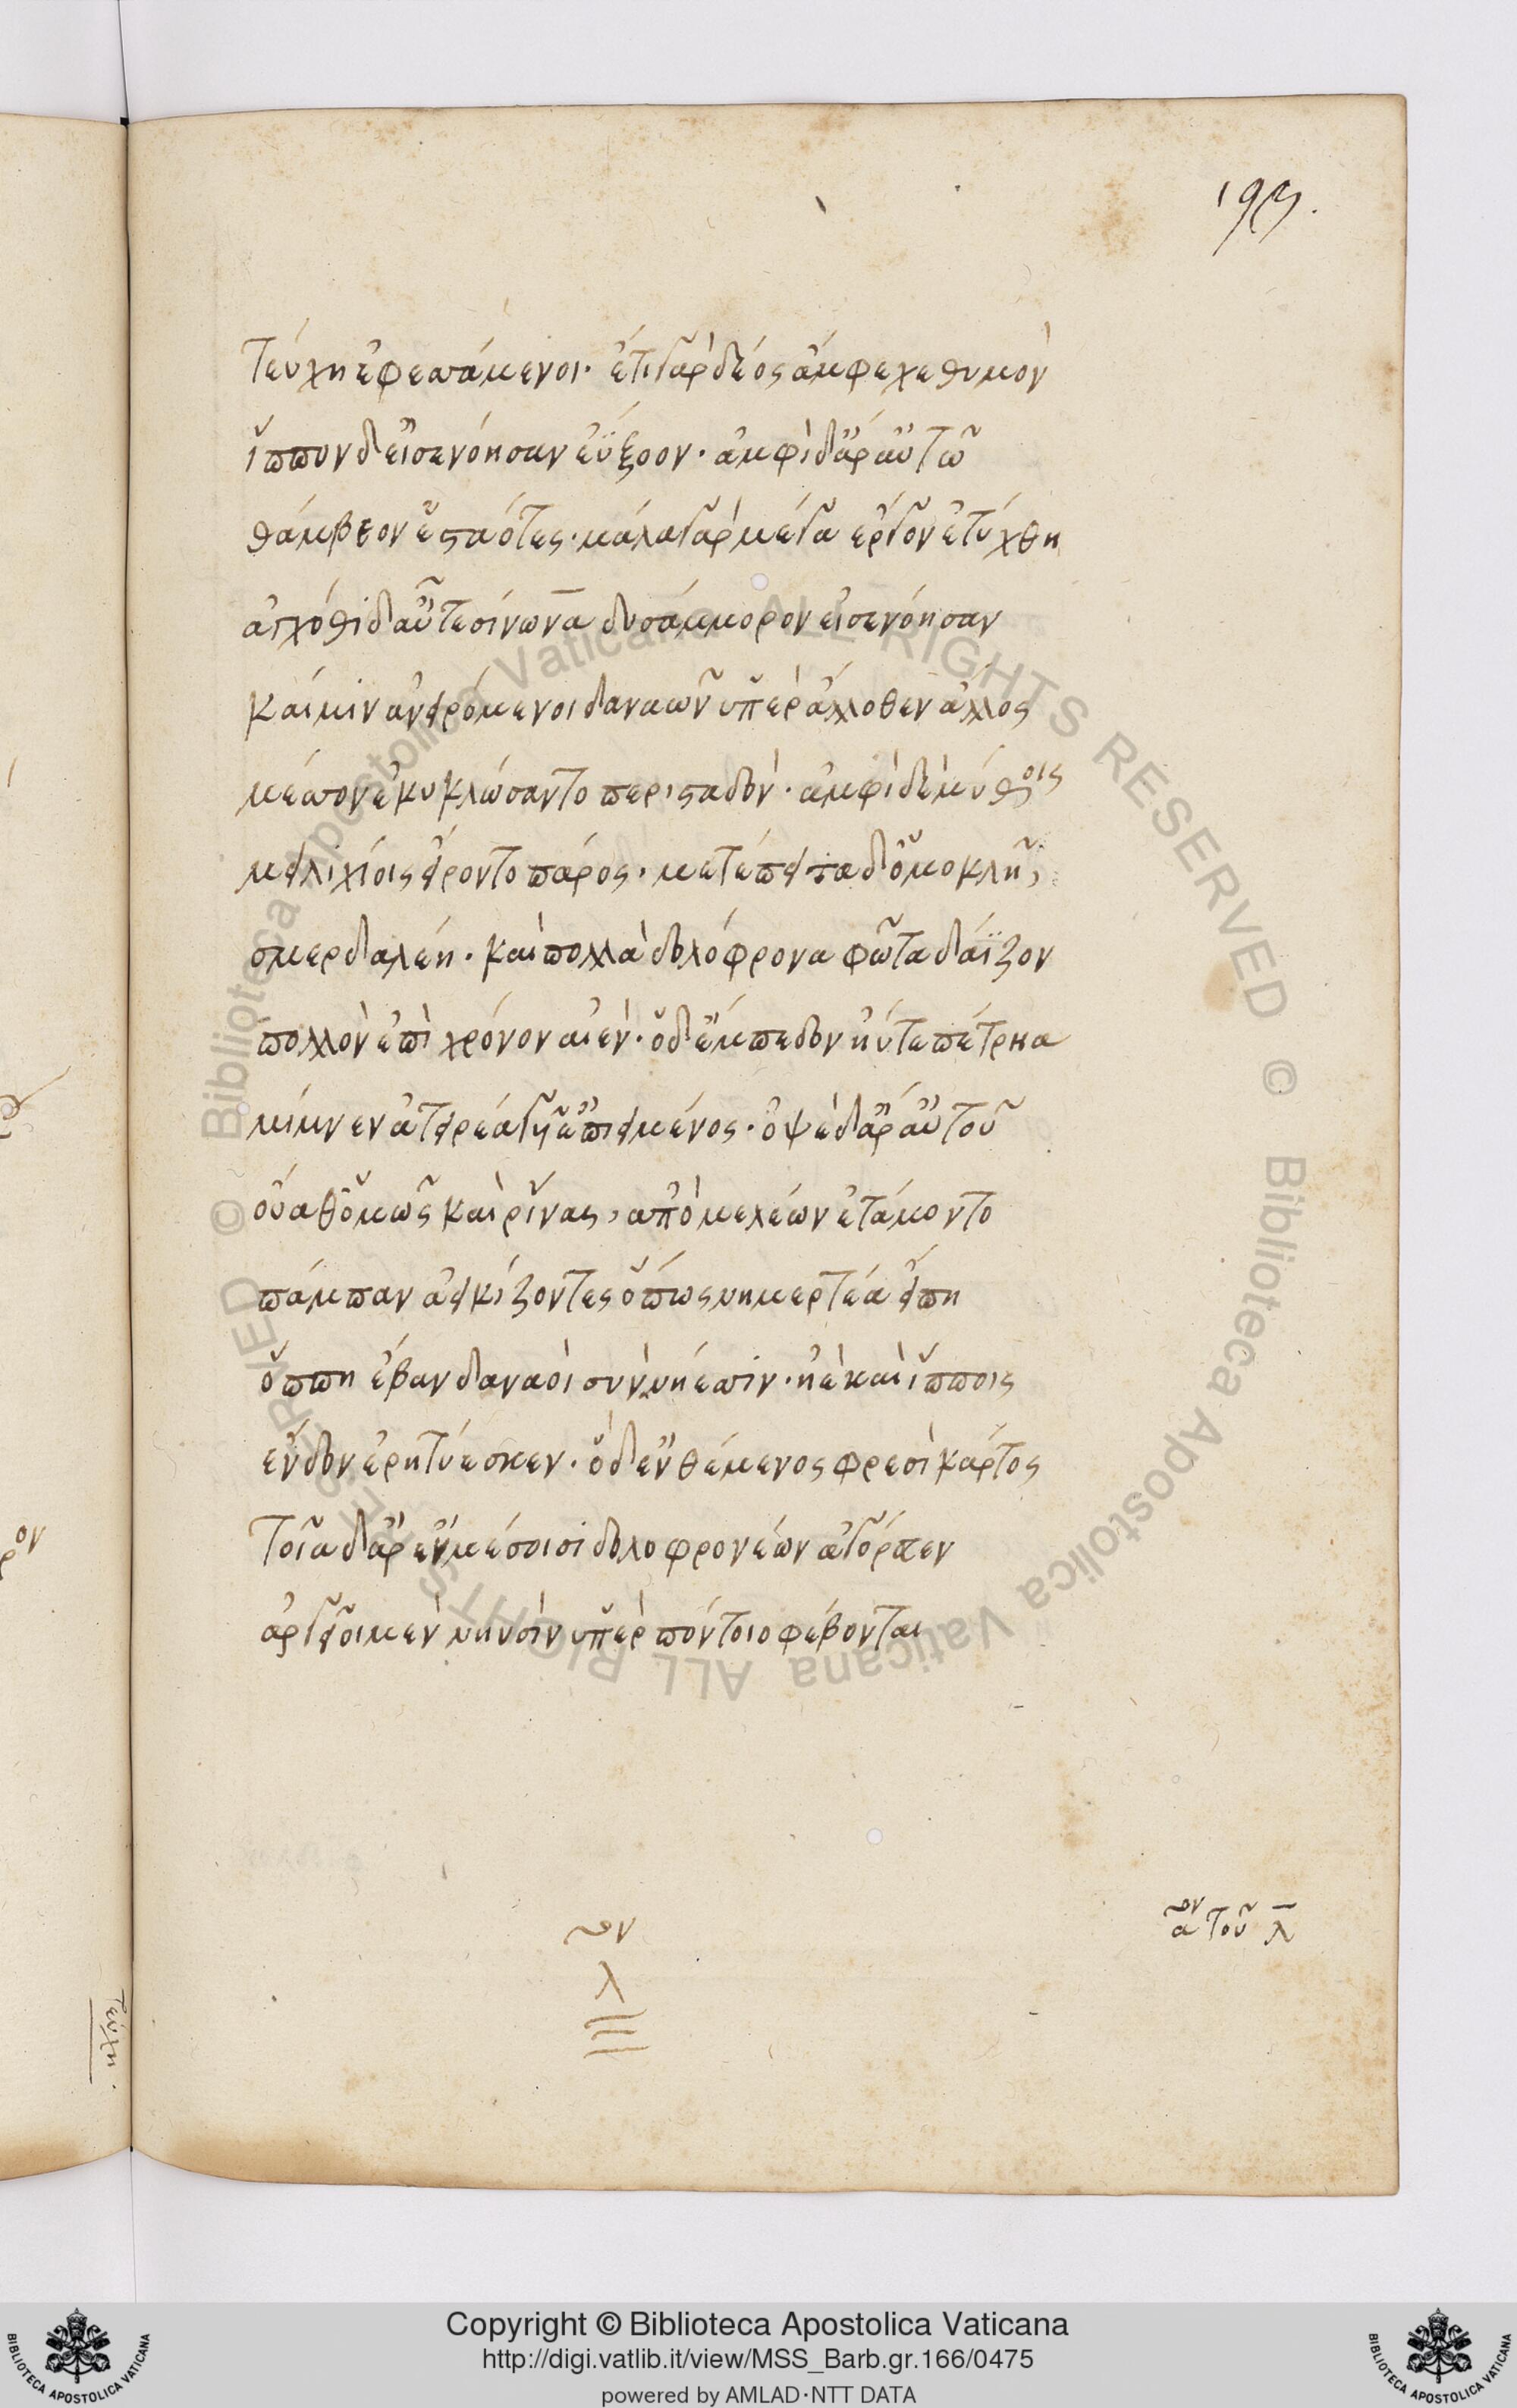 193.
τεύχη ἐφεσσάμενοι· ἔτι γὰρ δέος ἄμφεχε θυμὸν
ἵππον δ' εἰσενόησαν ἐΰξοον· ἀμφὶ δ' ἄρ' αὐτῶ
θάμβεον ἑσταότες· μάλα γὰρ μέγα ἔργον ἐτύχθη
ἀγχόθι δ' αὖτε σίνωνα δυσάμμορον εἰσενόησαν
καί μιν ἀνειρόμενοι δαναῶν ὕπερ ἄλλοθεν ἄλλος
μέσσον ἐκυκλώσαντο περισταδόν· ἀμφὶ δὲ μύθοις
μειλιχίοις εἴροντο πάρος· μετέπειτα δ' ὁμοκλῆ,
σμερδαλέη· καὶ πολλὰ δολόφρονα φῶτα δάϊζον
πολλὸν ἐπὶ χρόνον αἰέν· ὁ δ' ἔμπεδον ἠύτε πέτρη
μίμνεν ἀτειρέα γυῖ' ἐπιειμένος· ὀψὲ δ' ἄρ' αὐτοῦ
οὔαθ' ὁμῶς καὶ ῥῖνας, ἀπὸ μελέων ἐτάμοντο
πάμπαν ἀεικίζοντες ὅπως νημερτέα εἴπη
ὅππη ἔβαν δαναοὶ σὺν νήεσσιν· ἠὲ καὶ ἵπποις
ἔνδον ἐρητύεσκεν· ὁ δ' ἐνθέμενος φρεσὶ κάρτος
τοῖα δ' ἄρ' ἐν μέσσοισι δολοφρονέων ἀγόρευεν
ἀργεῖοι μὲν νηυσὶν ὑπὲρ πόντοιο φέβονται
ον
λ
α ον τοῦ λ
τεύχη·